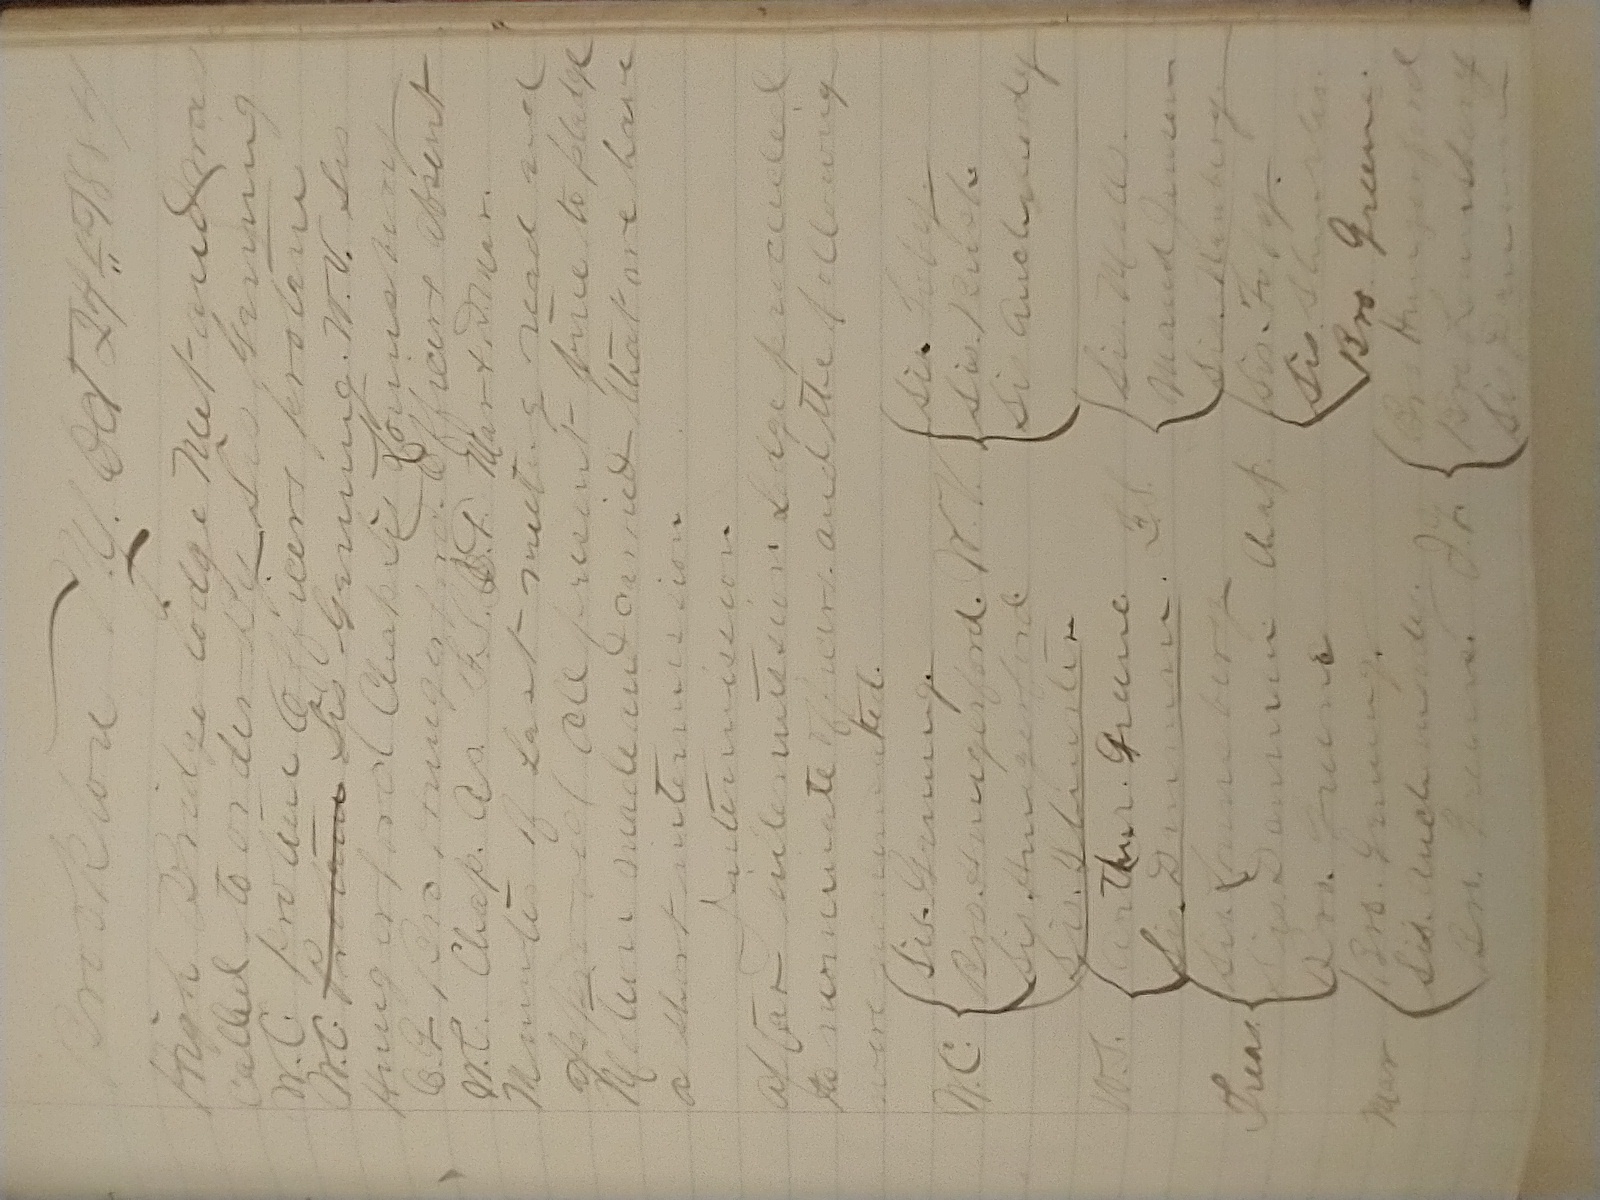 Brookton N.Y. Oct 24th 1884
High Bridge lodge Met and was
called to order by Sis Genung
W.C. protem Officers protem
W.C. Protem Sis Genung. W.V. Sis
Hungerford Chap Sis Lounsbery
Bro Hungerford. Officers absent
W.C. Chap. As. F.S. Mar & D. Mar.
Minutes of Last meeting read and
approved All present true to pledge
Motion made and carried that we have
a short intermission
Intermission
After intermission Lodge proceeded
to nominate officers. and the following
were nominated.
W.C. Sis. Genung.
Bro. Hungerford.
Sis. Hungerford
Sis.
W.V. Sis. Foby.
Sis. Rush
Sis Auchmoody
W.S. Arthur. Greene
Sis. Denman.
F.S. Sis. Mills.
Maud Jensen
Sis.
Treas. Sis Lounsbery
Sis. Denman
Bro. Greene
Chap. Sis. Foby.
Sis.
Bro. Greene.
Mar Bro. Genung.
Sis. Auchmoody.
Bro. Greene.
Bro Hungerford
Bro Lounsbery
Sis Denman